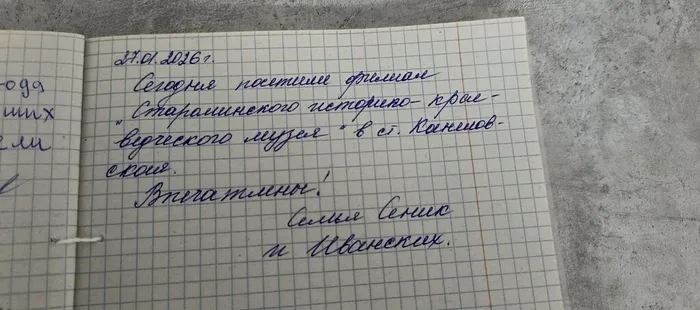 -ода
ших
ели
27.01.2026 г.
Сегодня посетили филиал
"Староминского историко-крае-
ведческого музея" в ст. Канелов-
ская.
Впечатлены!
Семья Сеник
и Иванских.